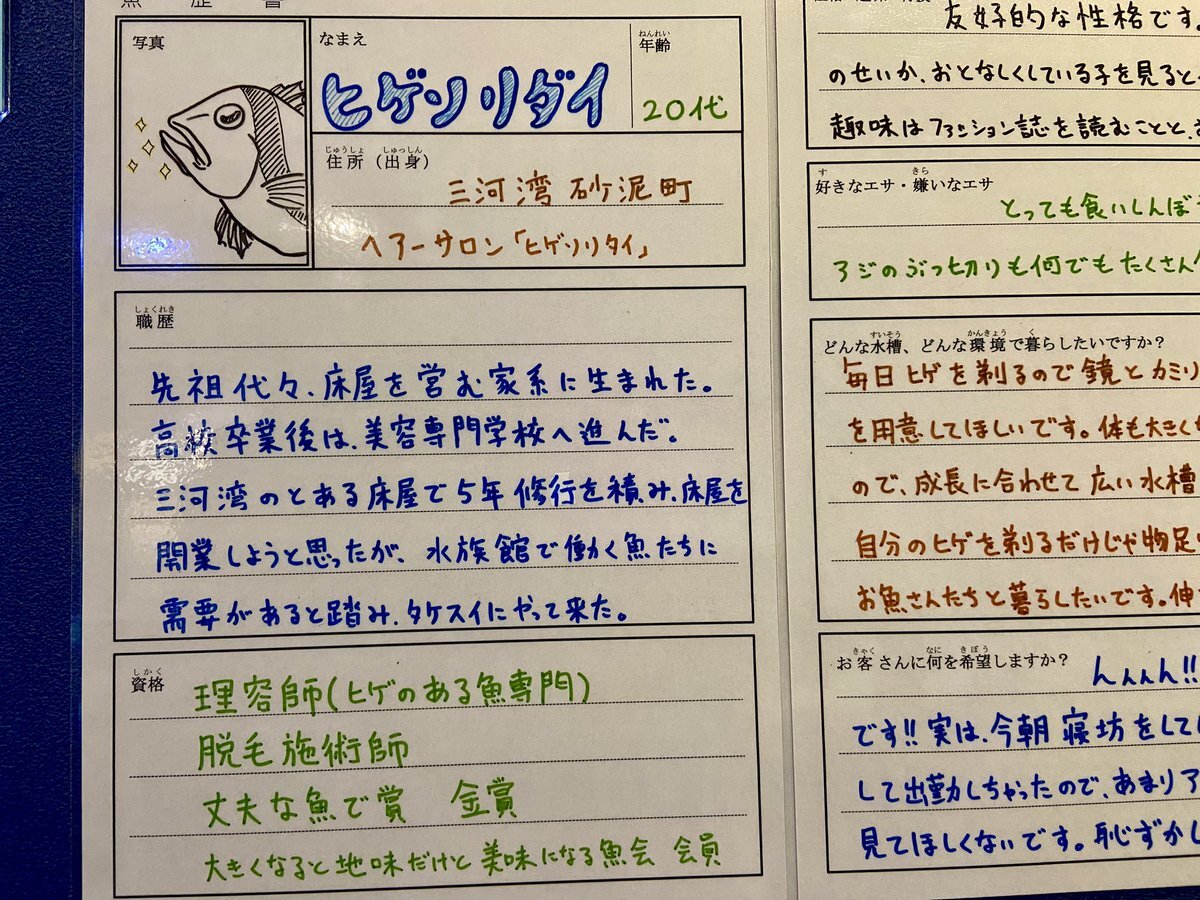 魚歴書
写真
なまえ
ヒゲソリダイ
ねんれい
年齢
20代
じゅうしょ しゅっしん
住所（出身）
三河湾 砂泥町
ヘアーサロン「ヒゲソリタイ」
しょくれき
職歴
先祖代々、床屋を営む家系に生まれた。
高校卒業後は、美容専門学校へ進んだ。
三河湾のとある床屋で5年修行を積み、床屋を
開業しようと思ったが、水族館で働く魚たちに
需要があると踏み、タケスイにやって来た。
しかく
資格
理容師(ヒゲのある魚専門)
脱毛施術師
丈夫な魚で賞 金賞
大きくなると地味だけど美味になる魚会 会員
友好的な性格です。
のせいか、おとなしくしている子を見ると
趣味はファッション誌を読むことと、
す きら
好きなエサ・嫌いなエサ
とっても食いしんぼ
アジのぶつ切りも何でもたくさん
すいそう かんきょう く
どんな水槽、どんな環境で暮らしたいですか？
毎日ヒゲを剃るので鏡とカミソリ
を用意してほしいです。体も大きく
ので、成長に合わせて広い水槽
自分のヒゲを剃るだけじゃ物足
お魚さんたちと暮らしたいです。伸
きゃく なに きぼう
お客さんに何を希望しますか？
んんんん!!
です!!実は、今朝寝坊をして
して出勤しちゃったので、あまりア
見てほしくないです。恥ずかし